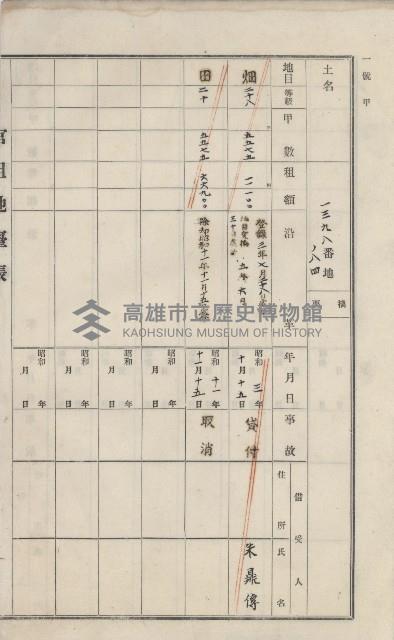 一號甲
土名
一三九八番地
ノ八四
摘要
地目
等級
甲數
租額
沿革
年月日
事故
借受人
住所
氏名
畑
二十八
五五七五
一二一〇〇
昭和三年
十月十五日
貸付
朱鼎傳
田
二十
五五七五
六六九〇〇
除却昭和十一年十一月十五日
昭和十一年
十一月十五日
取消
昭和 年
月 日
昭和 年
月 日
昭和 年
月 日
昭和 年
月 日
官租地臺帳
高雄市立歷史博物館
KAOHSIUNG MUSEUM OF HISTORY